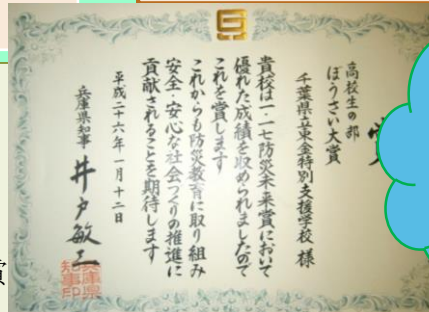 高校生の部
ぼうさい大賞
千葉県立東金特別支援学校 様
貴校は一・一七防災未来賞において
優れた成績を収められましたので
これを賞します
これからも防災教育に取り組み
安全・安心な社会づくりの推進に
貢献されることを期待します
平成二十六年一月十二日
兵庫県知事 井戸敏三